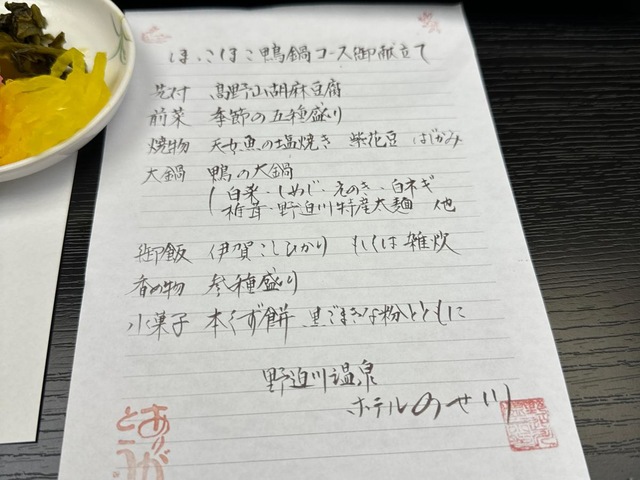 ほっこほこ鴨鍋コース御献立て
先付 高野山胡麻豆腐
前菜 季節の五種盛り
焼物 天女魚の塩焼き 紫花豆 はじかみ
大鍋 鴨の大鍋
(白菜・しめじ・えのき・白ネギ
椎茸・野迫川特産太麺 他
御飯 伊賀こしひかり もしくは雑炊
香の物 参種盛り
小菓子 本くず餅 黒ごまきな粉とともに
野迫川温泉
ホテルのせ川
ありがとう